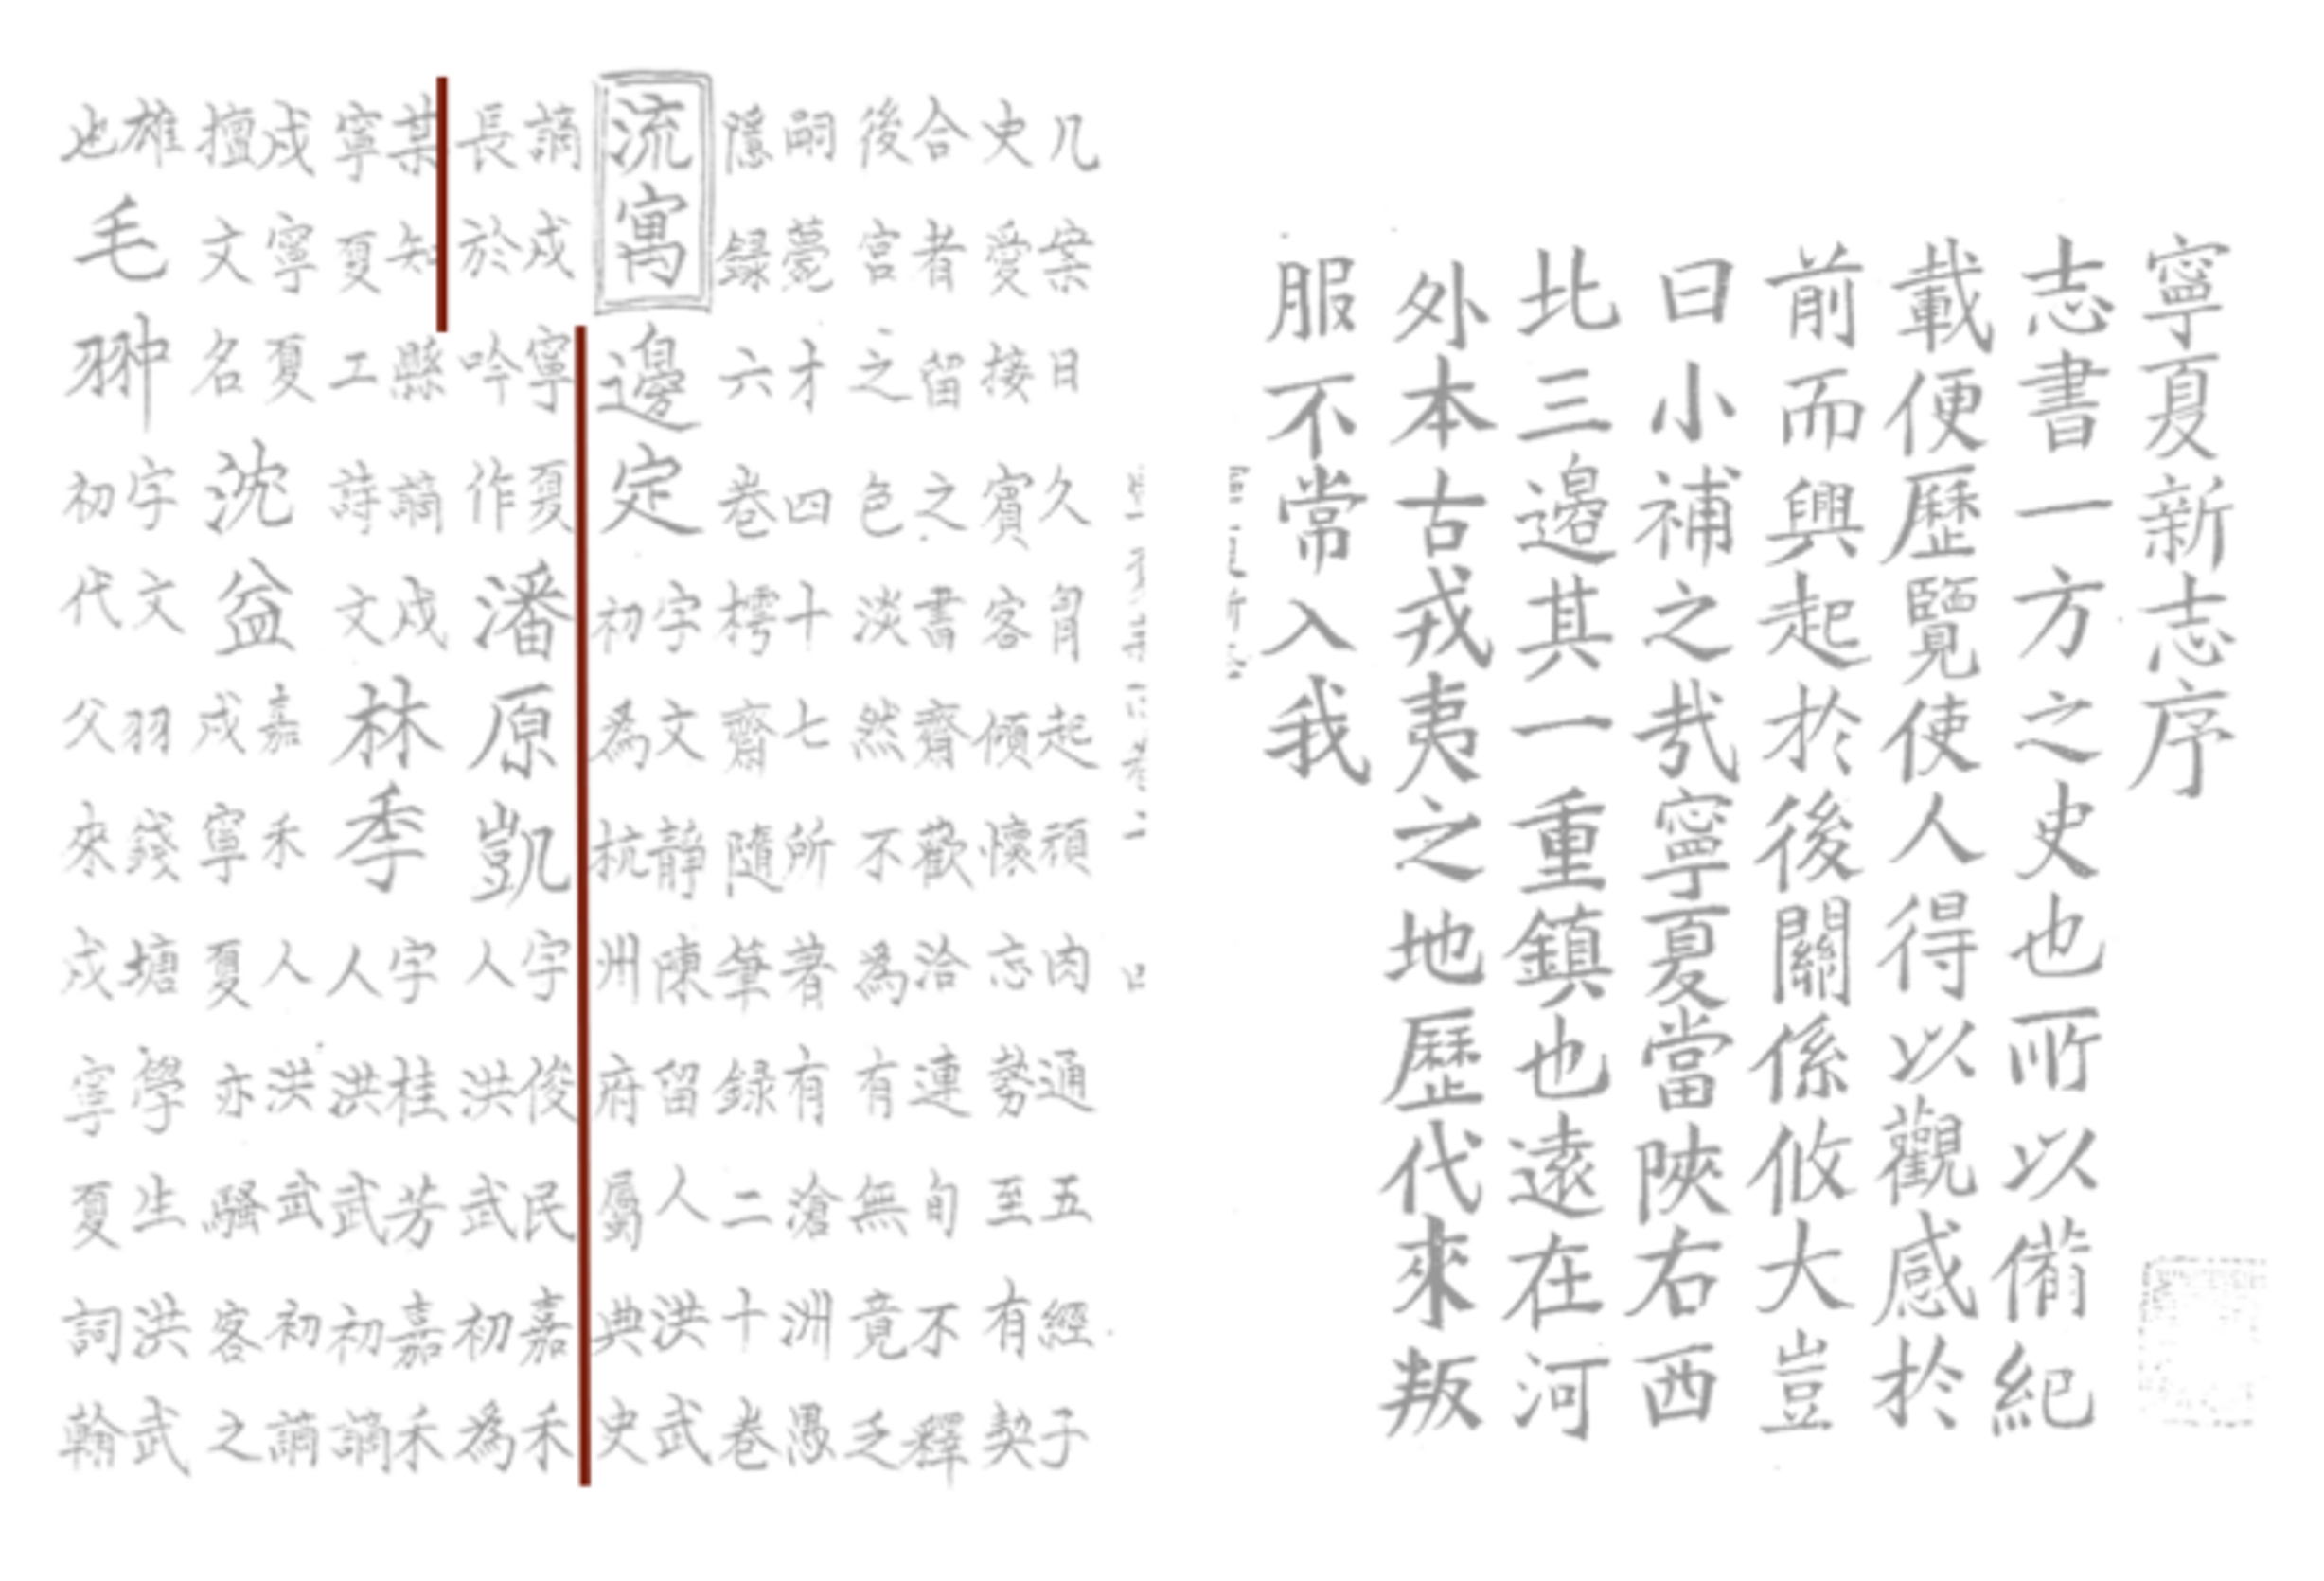 寧夏新志序
志書一方之史也所以備紀
載便歷覽使人得以觀感於
前而興起於後關係攸大豈
曰小補之哉寧夏當陝右西
北三邊其一重鎮也遠在河
外本古戎夷之地歷代來叛
服不常入我
几案日久胷起頑肉通五經子
史愛接賓客傾懷忘勢至有契
合者留之書齋歡洽連旬不釋
後宮之色淡然不為有無竟乏
嗣薨才四十七所著有滄洲愚
隱録六卷樗齋隨筆録二十卷
流寓
邊定
字文静陳留人洪武
初為杭州府屬典史
謫戍寧夏
長於吟作
潘原凱
字俊民嘉禾
人洪武初為
某知縣謫戍
寧夏工詩文
林季
字桂芳嘉禾
人洪武初謫
戍寧夏
擅文名
沈益
嘉禾人洪武初謫
戍寧夏亦騷客之
雄
也
毛翀
字文羽錢塘學生洪武
初代父來戍寧夏詞翰